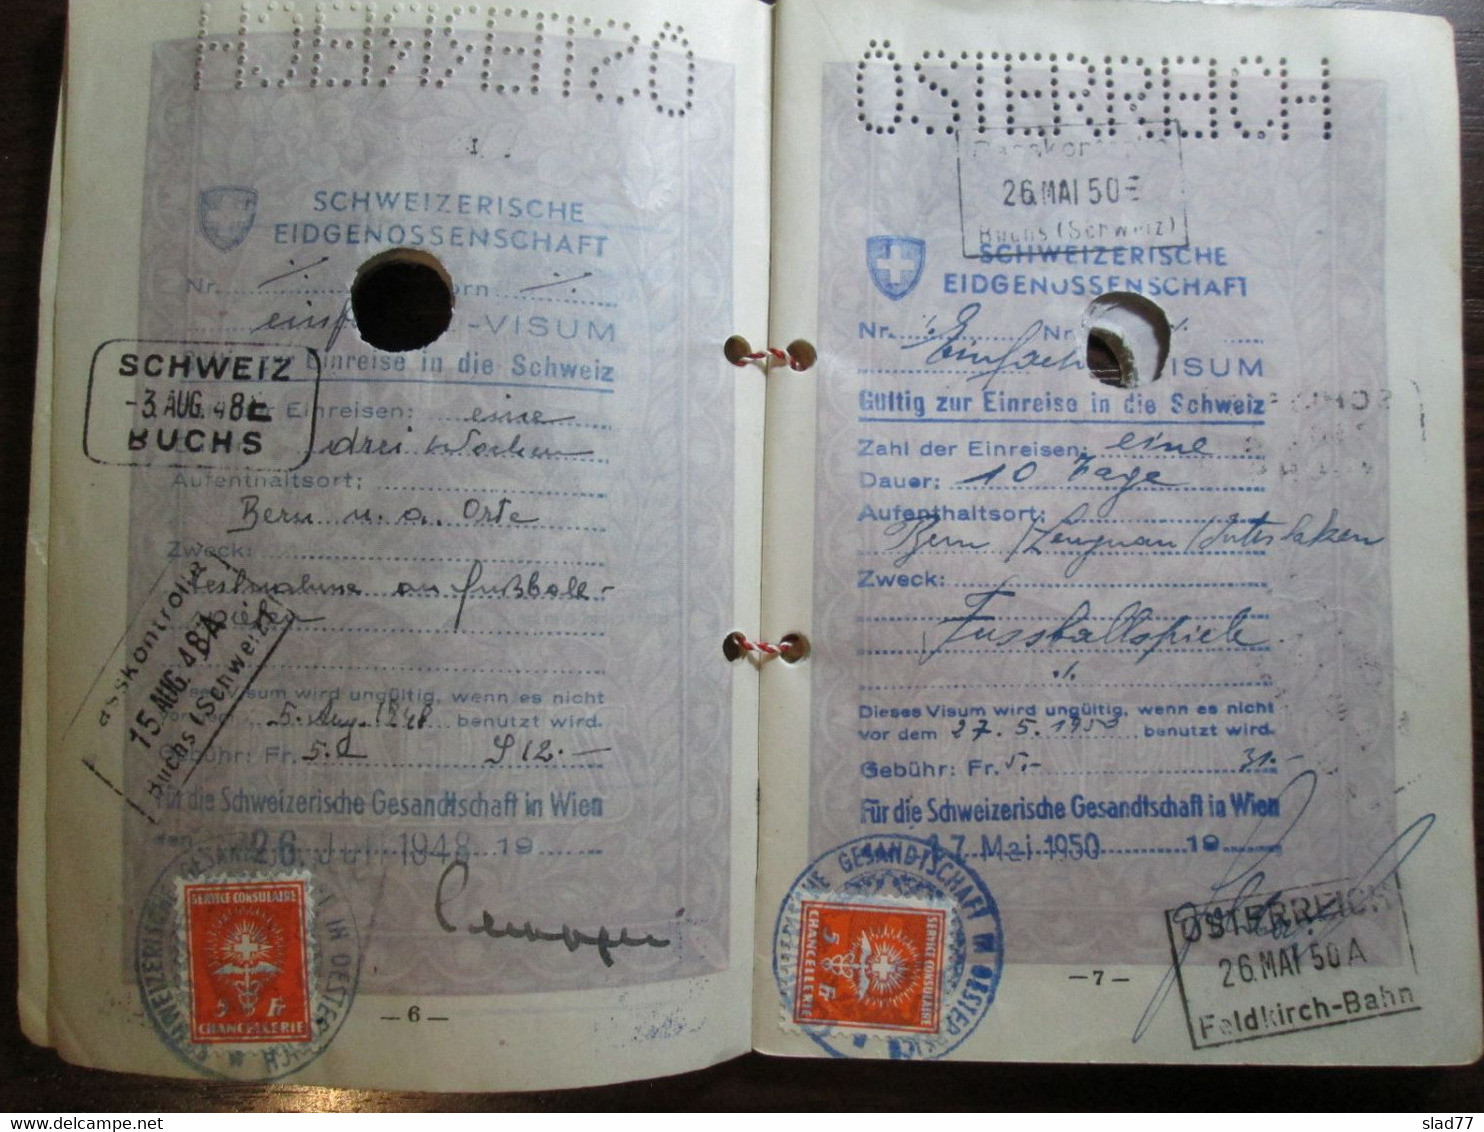 ÖSTERREICH
SCHWEIZERISCHE
EIDGENOSSENSCHAFT
Nr.
-VISUM
Einreise in die Schweiz
Einreisen: eine
drei Wochen
Aufenthaltsort:
Bern u. a. Orte
Zweck:
Teilnahme an Fußball-
Dieses Visum wird ungültig, wenn es nicht
vor dem 5. Aug. 1948 benutzt wird.
Gebühr: Fr. 5.- S 12.-
Für die Schweizerische Gesandtschaft in Wien
den 26. Juli 1948 19
SCHWEIZ
-3. AUG. 48 E
BUCHS
Passkontrolle
15. AUG. 48 A
Buchs (Schweiz)
SERVICE CONSULAIRE
5 Fr
CHANCELLERIE
— 6 —
ÖSTERREICH
Passkontrolle
26. MAI 50 E
Buchs (Schweiz)
SCHWEIZERISCHE
EIDGENOSSENSCHAFT
Nr. Nr.
Einfach VISUM
Gültig zur Einreise in die Schweiz
Zahl der Einreisen: eine
Dauer: 10 Tage
Aufenthaltsort:
Bern / Lengnau / Interlaken
Zweck:
Fussballspiele
Dieses Visum wird ungültig, wenn es nicht
vor dem 27. 5. 1950 benutzt wird.
Gebühr: Fr. 5.- 31.-
Für die Schweizerische Gesandtschaft in Wien
17. Mai 1950 19
SCHWEIZERISCHE GESANDTSCHAFT IN OESTERREICH
SERVICE CONSULAIRE
5 Fr
CHANCELLERIE
— 7 —
ÖSTERREICH
26. MAI 50 A
Feldkirch-Bahn
delcampe.net
slad77